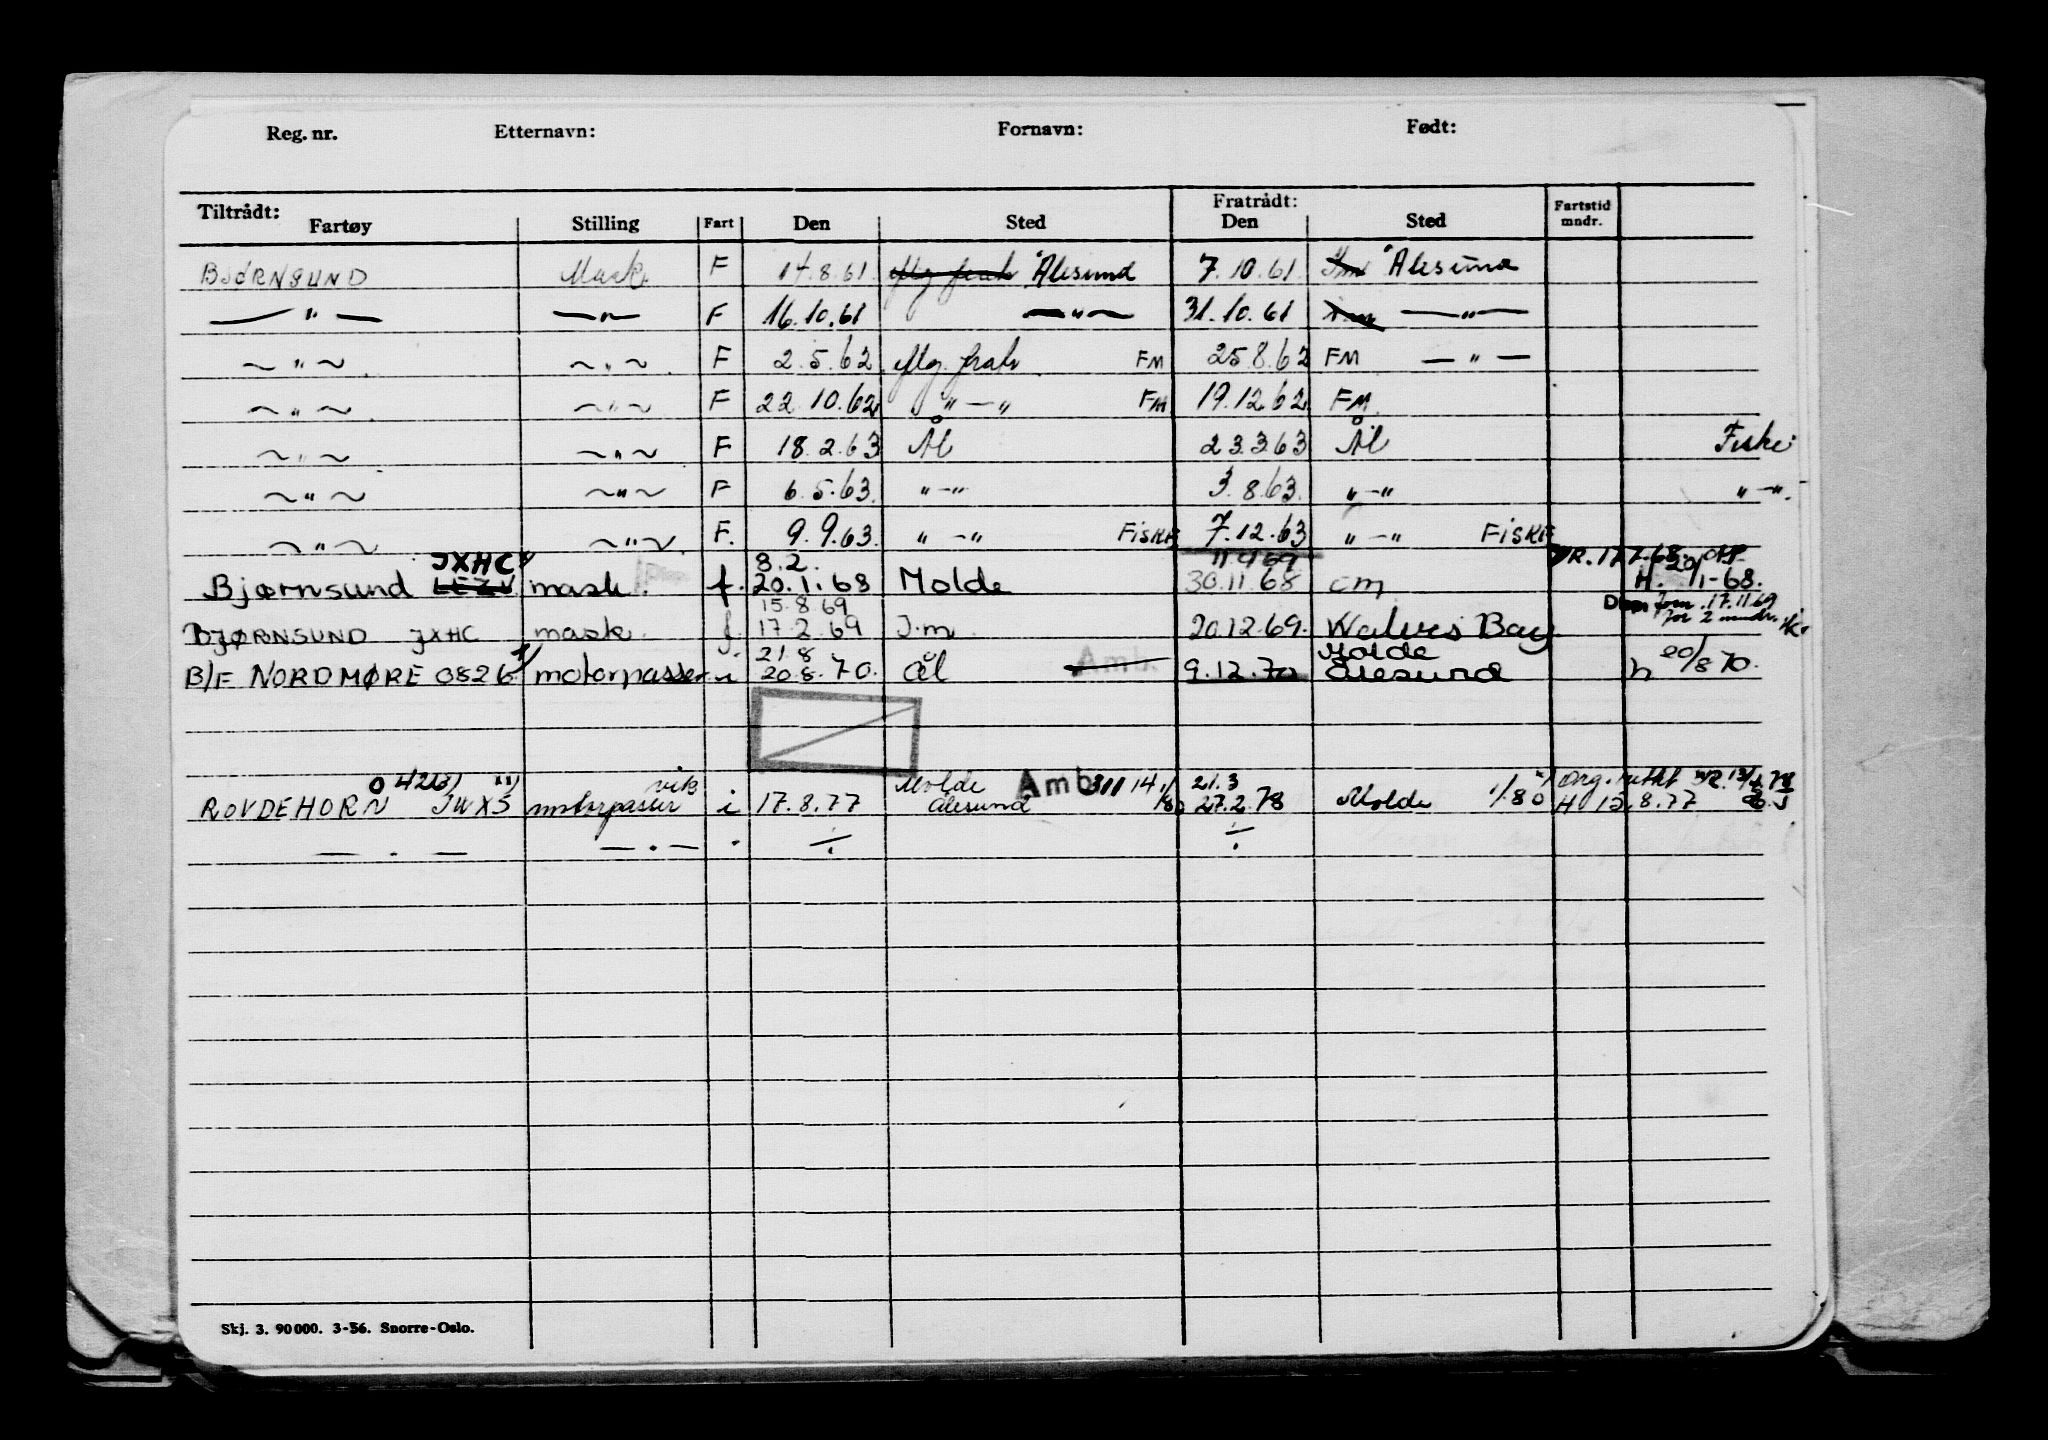 Reg. nr. Etternavn: Fornavn: Født:
Tiltrådt: Fratrådt:
Fartøy Stilling Fart Den Sted Den Sted Fartstid mndr.
BJØRNSUND Mask. F 14.8.61 Ålesund 7.10.61 Ålesund
— " — — " — F 16.10.61 — " — 31.10.61 — " —
~ " ~ ~ " ~ F 2.5.62 eftg. frakt FM 25.8.62 FM — " —
~ " ~ ~ " ~ F 22.10.62 " — " FM 19.12.62 FM
~ " ~ ~ " ~ F 18.2.63 Ål 23.3.63 Ål Fiske
~ " ~ ~ " ~ F 6.5.63. " — " 3.8.63. " — " " — ".
~ " ~ ~ " ~ F. 9.9.63. " — " FISKE 7.12.63 " — " FISKE
JXHC 8.2. 11.4.69
Bjørnsund LEZV mask. f. 20.1.68 Molde 30.11.68 cm H. 20/1-68.
15.8.69 17.11.69
BJØRNSUND JXHC mask. f. 17.2.69 I.m. 20.12.69. Walvis Bay for 2 mndr.
21.8 Molde
B/F NORDMØRE 0826 motorpasser i 20.8.70. Ål Amb. 9.12.70 Ålesund h 20/8 70.
vik Molde Amb. 21.3
ROVDEHORN JWXS motorpasser i 17.8.77 Ålesund 27.2.78 Molde 1/80 H 8.77
— . — — . — " ÷ ÷
Skj. 3. 90000. 3-56. Snorre-Oslo.